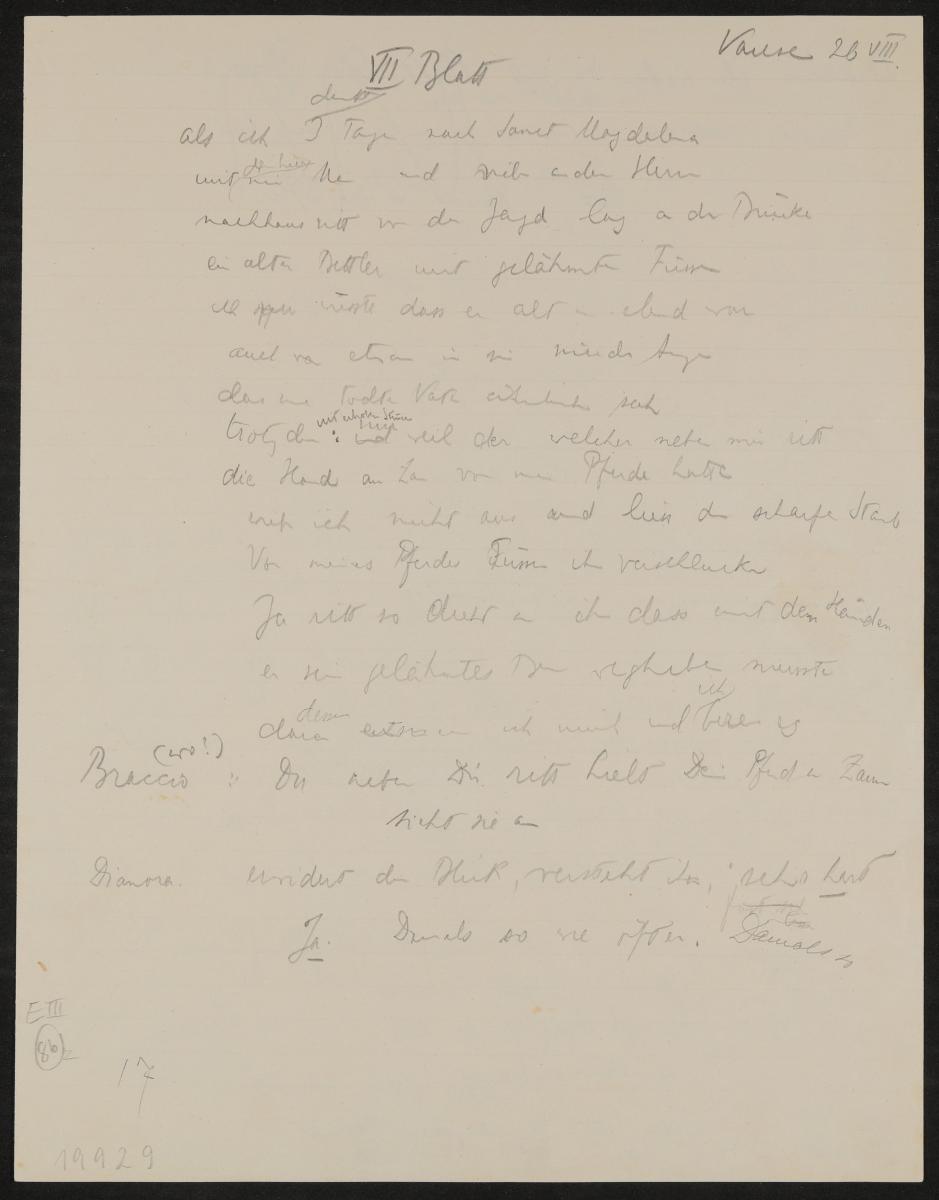 Varese 26 VIII.
VII Blatt
denkt
als ich 3 Tage nach Sanct Magdalena
mit und an den Herrn
nachhaus ritt von der Jagd lag an der Brücke
ein alter Bettler mit gelähmten Füssen
ich wusste dass er alt u. elend war
auch war etwas in sein müden Augen
das meinem todten Vater ähnlich sah
trotzdem : und nur weil der welcher neben mir ritt
die Hand am Zaum von mein Pferde hatte
wich ich nicht aus und liess den scharfen Staub
Von meines Pferdes Füssen ihn verschlucken
Ja ritt so dicht an ihn dass mit den Händen
er sein gelähmtes Bein wegheben musste
dessen
ich
daran ich mich und es
(wo!)
Braccio : Der neben Dir ritt hielt Dein Pferd am Zaum
sieht sie an
Dianora. erwidert den Blick, versteht ihn, sehr hart
Ja. Damals so wie öfter. Damals so
E III
86
17
19929